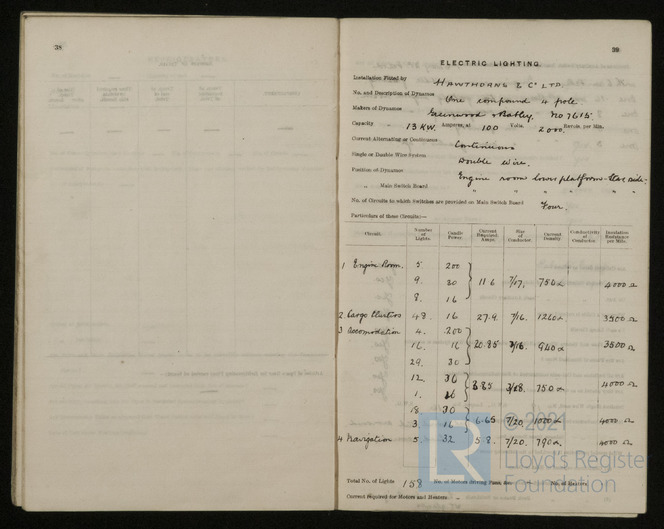 38
39
ELECTRIC LIGHTING.
Installation Fitted by HAWTHORNS & Co LTD.
No. and Description of Dynamos One compound 4 pole
Makers of Dynamos Greenwood & Batley. No 7615.
Capacity 13 KW. Amperes, at 100 Volts. 2000. Revols. per Min.
Current Alternating or Continuous Continuous
Single or Double Wire System Double wire.
Position of Dynamos Engine room lower platform - Star side.
„ Main Switch Board " " " " "
No. of Circuits to which Switches are provided on Main Switch Board Four.
Particulars of these Circuits:—
Circuit. Number of Lights. Candle Power. Current Required. Amps. Size of Conductor. Current Density Conductivity of Conductor. Insulation Resistance per Mile.
1 Engine Room. 5 200
9. 30 11.6 7/17. 756 4000 Ω
8. 16
2. Cargo Clusters 48. 16 27.9. 7/16. 1260 3500 Ω
3 Accomodation 4. 200
16. 16 20.85 940 3500 Ω
29. 30
12. 16 3.85 3/18. 750 4000 Ω
1.
18. 30
3. 16 6.65 7/20. 1000 4000 Ω
4 Navigation 5. 32. 5.8. 7/20. 790 4000 Ω
Total No. of Lights 158 No. of Motors driving Fans, &c. No. of Heaters
Current required for Motors and Heaters
© 2021
LR
Lloyd's Register
Foundation